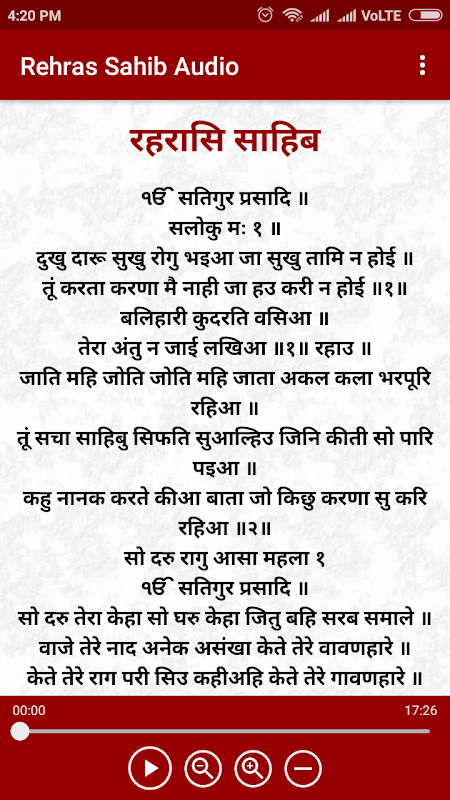 4:20 PM VoLTE
Rehras Sahib Audio
रहरासि साहिब
ੴ सतिगुर प्रसादि ॥
सलोकु मः १ ॥
दुखु दारू सुखु रोगु भइआ जा सुखु तामि न होई ॥
तूं करता करणा मै नाही जा हउ करी न होई ॥१॥
बलिहारी कुदरति वसिआ ॥
तेरा अंतु न जाई लखिआ ॥१॥ रहाउ ॥
जाति महि जोति जोति महि जाता अकल कला भरपूरि
रहिआ ॥
तूं सचा साहिबु सिफति सुआल्हिउ जिनि कीती सो पारि
पइआ ॥
कहु नानक करते कीआ बाता जो किछु करणा सु करि
रहिआ ॥२॥
सो दरु रागु आसा महला १
ੴ सतिगुर प्रसादि ॥
सो दरु तेरा केहा सो घरु केहा जितु बहि सरब समाले ॥
वाजे तेरे नाद अनेक असंखा केते तेरे वावणहारे ॥
केते तेरे राग परी सिउ कहीअहि केते तेरे गावणहारे ॥
00:00 17:26